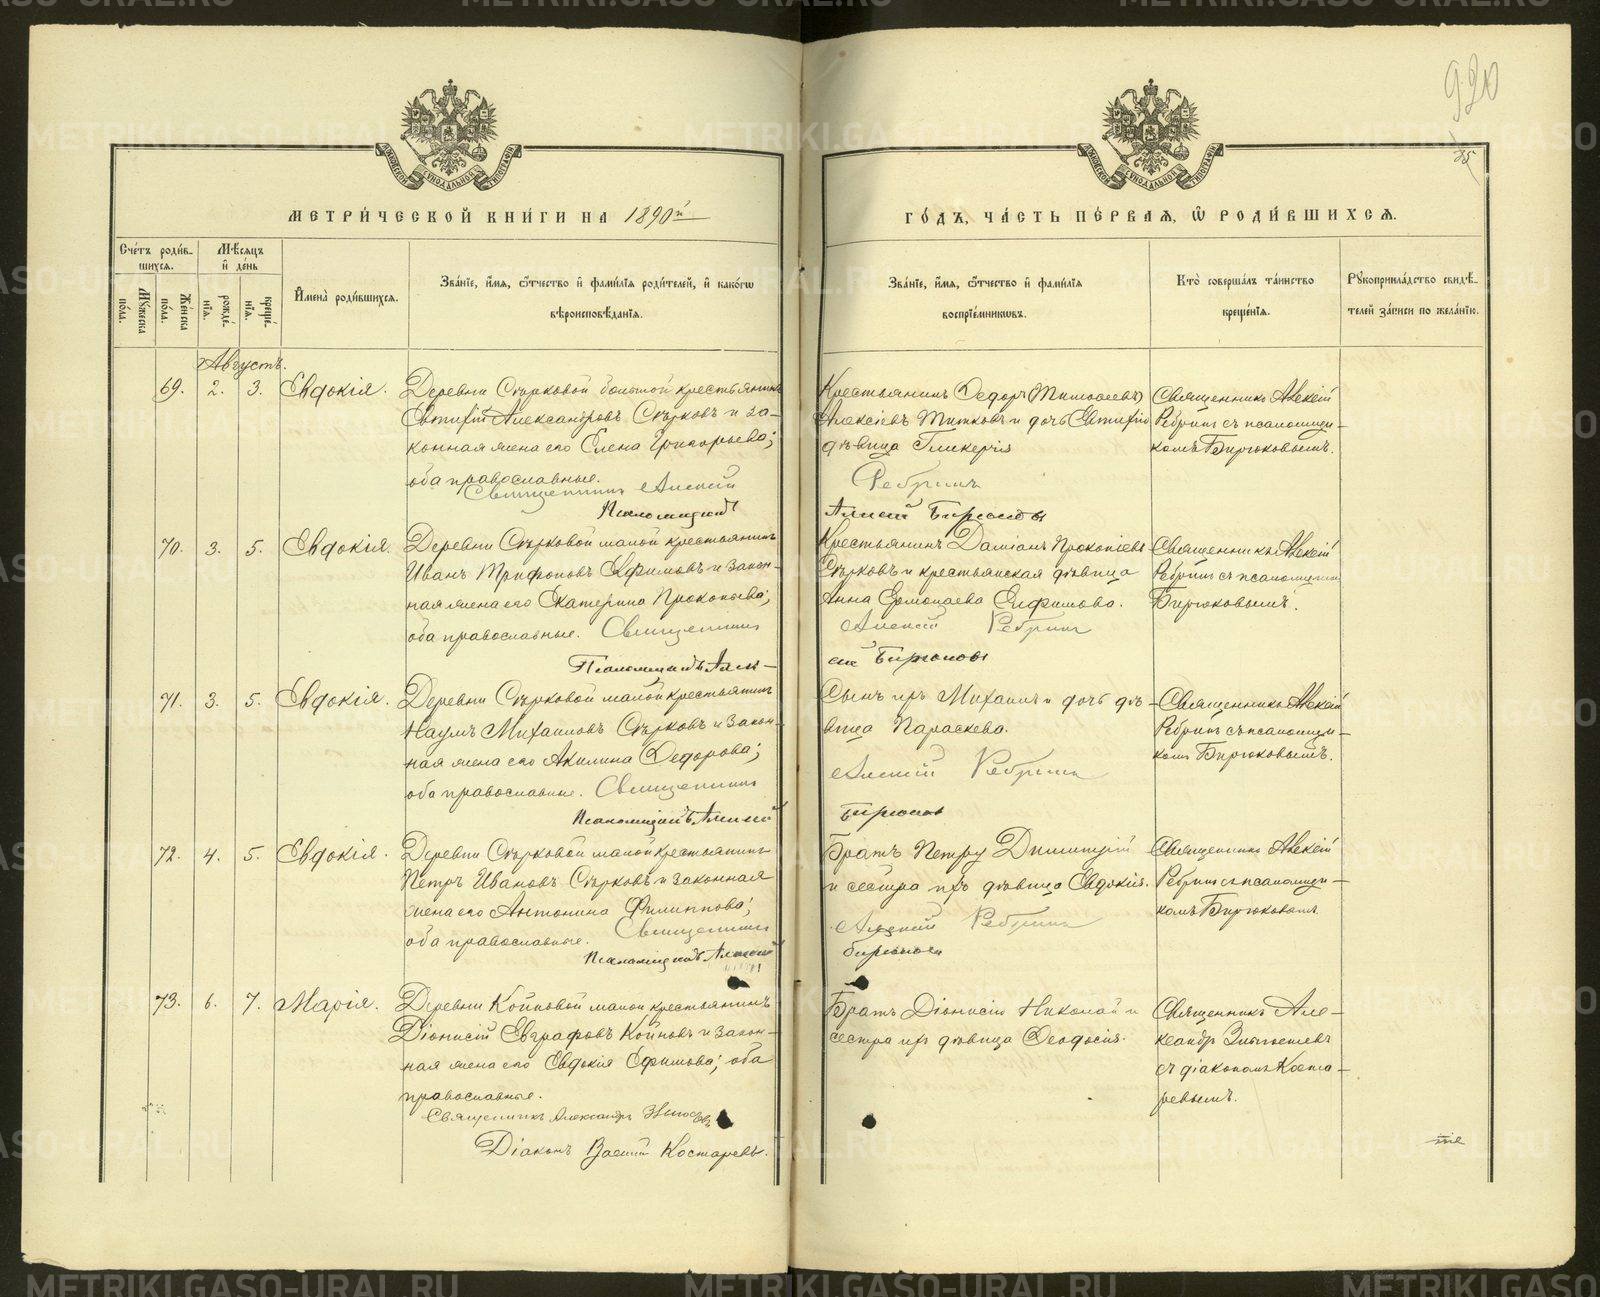 920
35
МЕТРИ́ЧЕСКОЙ КНИ́ГИ НА 1890й
ГО́ДЪ, ЧА́СТЬ ПЕ́РВАЯ, Ѿ РОДИ́ВШИХСЯ.
Сче́тъ роди́в-
шихся.
Мѣ́сяцъ
и де́нь
Му́жеска
по́ла.
Же́нска
по́ла.
рожде́-
нія.
креще́-
нія.
Имена̀ роди́вшихся.
Зва́ніе, и́мя, ѻ҆́тчество и фами́лія роди́телей, и како́гѡ
вѣроисповѣ́данія.
Зва́ніе, и́мя, ѻ҆́тчество и фами́лія
воспріе́мниковъ.
Кто̀ соверша́лъ та́инство
креще́нія.
Рукоприкла́дство свидѣ́-
телей за́писи по жела́нію.
Августъ.
69. 2. 3. Евдокія.
Деревни Сѣрковой большой крестьянинъ
Александровъ Сѣрковъ и за-
конная жена его Елена Григорьева;
оба православные.
Священникъ Алексій
Псаломщикъ
Крестьянинъ Ѳедоръ
Алексіевъ Титковъ и дочь
дѣвица Гликерія
Ребринъ
Алексій Бирюковъ
Священникъ Алексій
Ребринъ съ псаломщи-
комъ Бирюковымъ.
70. 3. 5. Евдокія.
Деревни Сѣрковой малой крестьянинъ
Иванъ Трифоновъ Ефимовъ и закон-
ная жена его Екатерина Прокопьева;
оба православные. Священникъ
Псаломщикъ Алек-
Крестьянинъ Даміанъ Прокопіевъ
Сѣрковъ и крестьянская дѣвица
Анна Ермолаева
Алексій Ребринъ
сій Бирюковъ
Священникъ Алексій
Ребринъ съ псаломщикомъ
Бирюковымъ.
71. 3. 5. Евдокія.
Деревни Сѣрковой малой крестьянинъ
Наумъ Михаиловъ Сѣрковъ и закон-
ная жена его Акилина Ѳедорова;
оба православные. Священникъ
Псаломщикъ Алексій
Сынъ ихъ Михаилъ и дочь дѣ-
вица Параскева.
Алексій Ребринъ
Бирюковъ
Священникъ Алексій
Ребринъ съ псаломщи-
комъ Бирюковымъ.
72. 4. 5. Евдокія.
Деревни Сѣрковой малой крестьянинъ
Петръ Ивановъ Сѣрковъ и законная
жена его Антонина Филиппова;
оба православные. Священникъ
Псаломщикъ Алексій
Братъ Петру Димитрій
и сестра ихъ дѣвица Евдокія.
Алексій Ребринъ
Бирюковъ
Священникъ Алексій
Ребринъ съ псаломщи-
комъ Бирюковымъ.
73. 6. 7. Марія.
Деревни Койновой малой крестьянинъ
Діонисій Евграфовъ Койновъ и закон-
ная жена его Евдокія Ефимова; оба
православные.
Священникъ Александръ
Діаконъ Василій Костаревъ.
Братъ Діонисію Николай и
сестра ихъ дѣвица Ѳеодосія.
Священникъ Але-
ксандръ
съ діакономъ Коста-
ревымъ.
METRIKI.GASO-URAL.RU